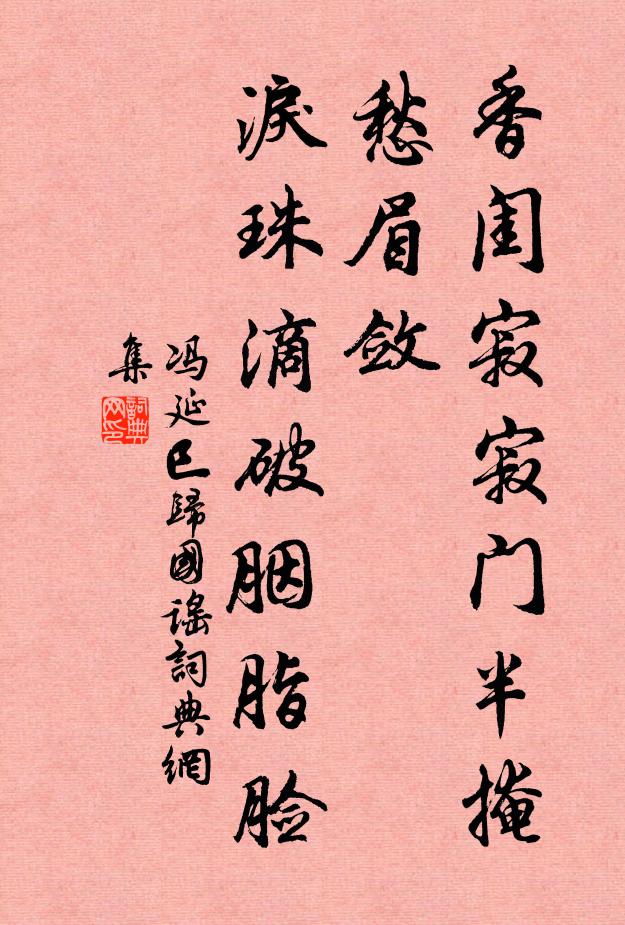 香闺寂寂门半掩
愁眉敛
淚珠滴破胭脂脸
冯延巳歸國谣詞典網
集
詞典
网印